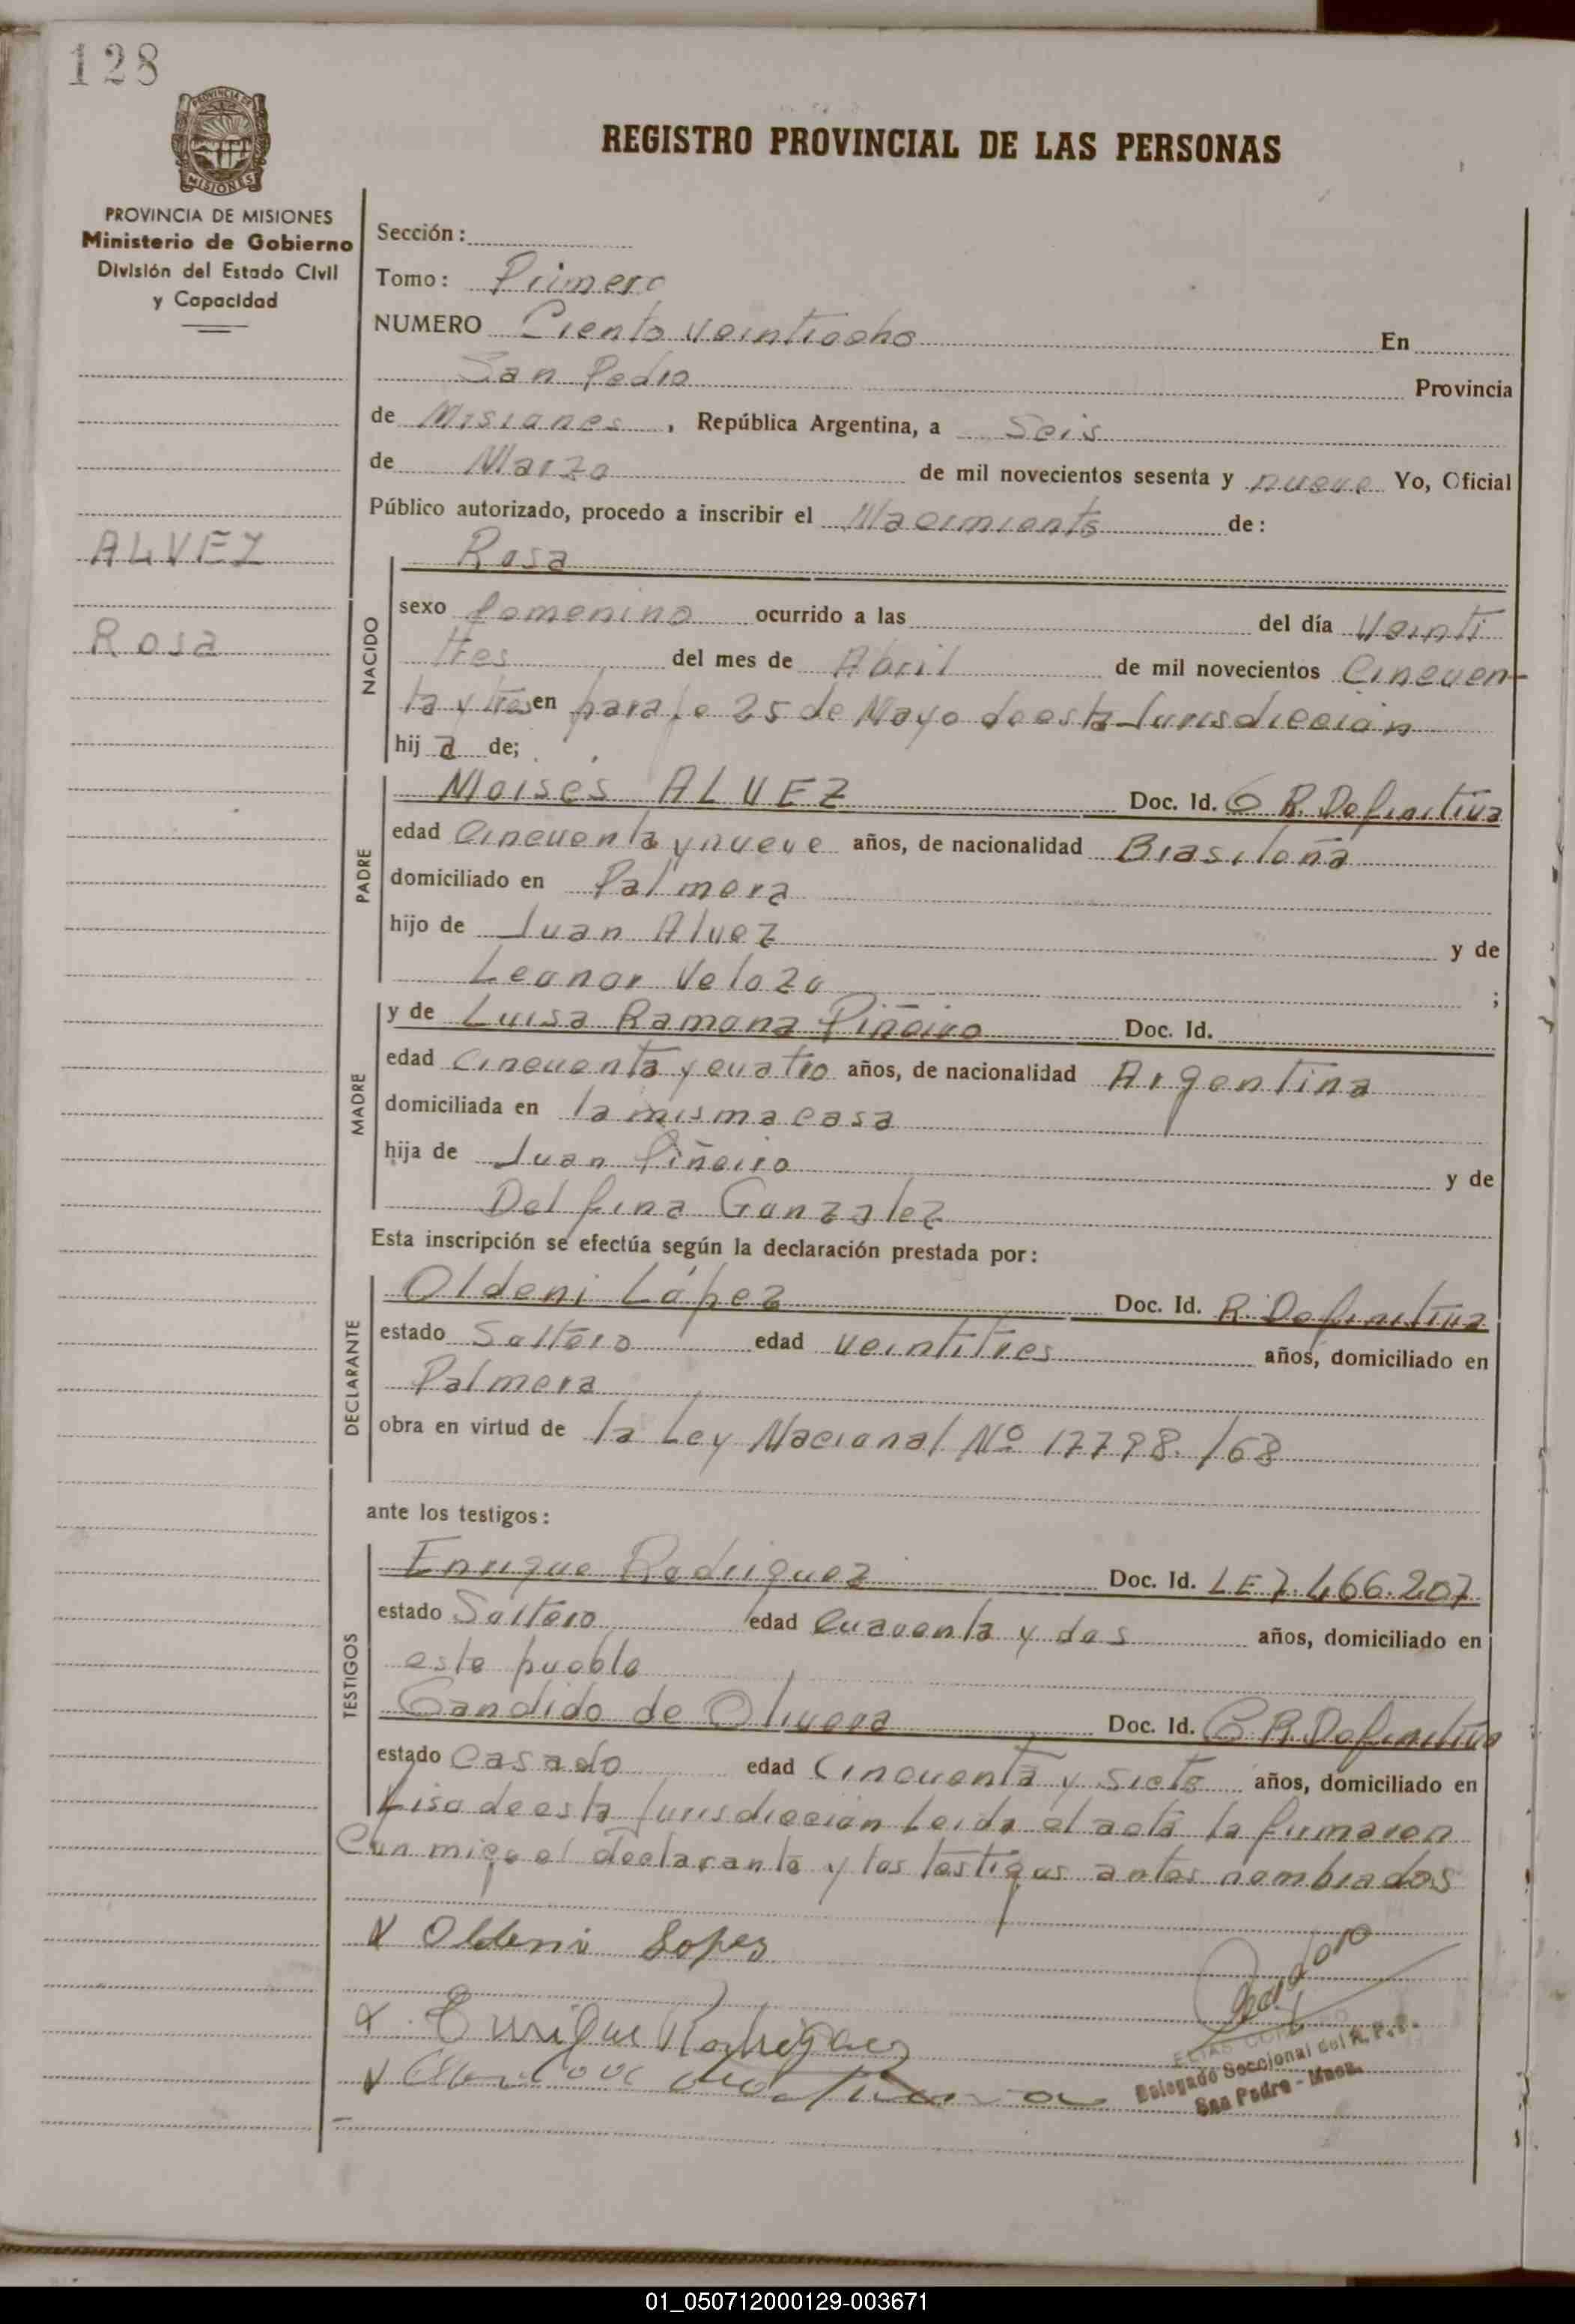 128
PROVINCIA DE
MISIONES
REGISTRO PROVINCIAL DE LAS PERSONAS
PROVINCIA DE MISIONES
Ministerio de Gobierno
División del Estado Civil
y Capacidad
ALVEZ
Rosa
Sección:
Tomo: Primero
NUMERO Ciento veintiocho En
San Pedro Provincia
de Misiones, República Argentina, a Seis
de Marzo de mil novecientos sesenta y nueve Yo, Oficial
Público autorizado, procedo a inscribir el Nacimiento de:
NACIDO
Rosa
sexo femenino ocurrido a las del día Veinti
tres del mes de Abril de mil novecientos Cincuen-
ta y tres en paraje 25 de Mayo de esta Jurisdicción
hij a de;
PADRE
Moisés ALVEZ Doc. Id. C R. Definitiva
edad Cincuenta y nueve años, de nacionalidad Brasileña
domiciliado en Palmera
hijo de Juan Alvez y de
Leonor Velozo ;
MADRE
y de Luisa Ramona Piñeiro Doc. Id.
edad cincuenta y cuatro años, de nacionalidad Argentina
domiciliada en la misma casa
hija de Juan Piñeiro y de
Delfina Gonzalez
Esta inscripción se efectúa según la declaración prestada por:
DECLARANTE
Oldeni López Doc. Id. R. Definitiva
estado Soltero edad veintitres años, domiciliado en
Palmera
obra en virtud de la Ley Nacional Nº 17798./68
ante los testigos:
TESTIGOS
Enrique Rodriguez Doc. Id. L.E 7.466.207
estado Soltero edad Cuarenta y dos años, domiciliado en
este pueblo
Candido de Olivera Doc. Id. C R. Definitiva
estado Casado edad Cincuenta y siete años, domiciliado en
de esta Jurisdicción Leida el acta la firmaron
Con migo el declarante y los testigos antes nombrados
Oldeni Lopes
Enrique Rodriguez
ELIAS
Delegado Seccional del R. P. P.
San Pedro - Mnes.
01_050712000129-003671